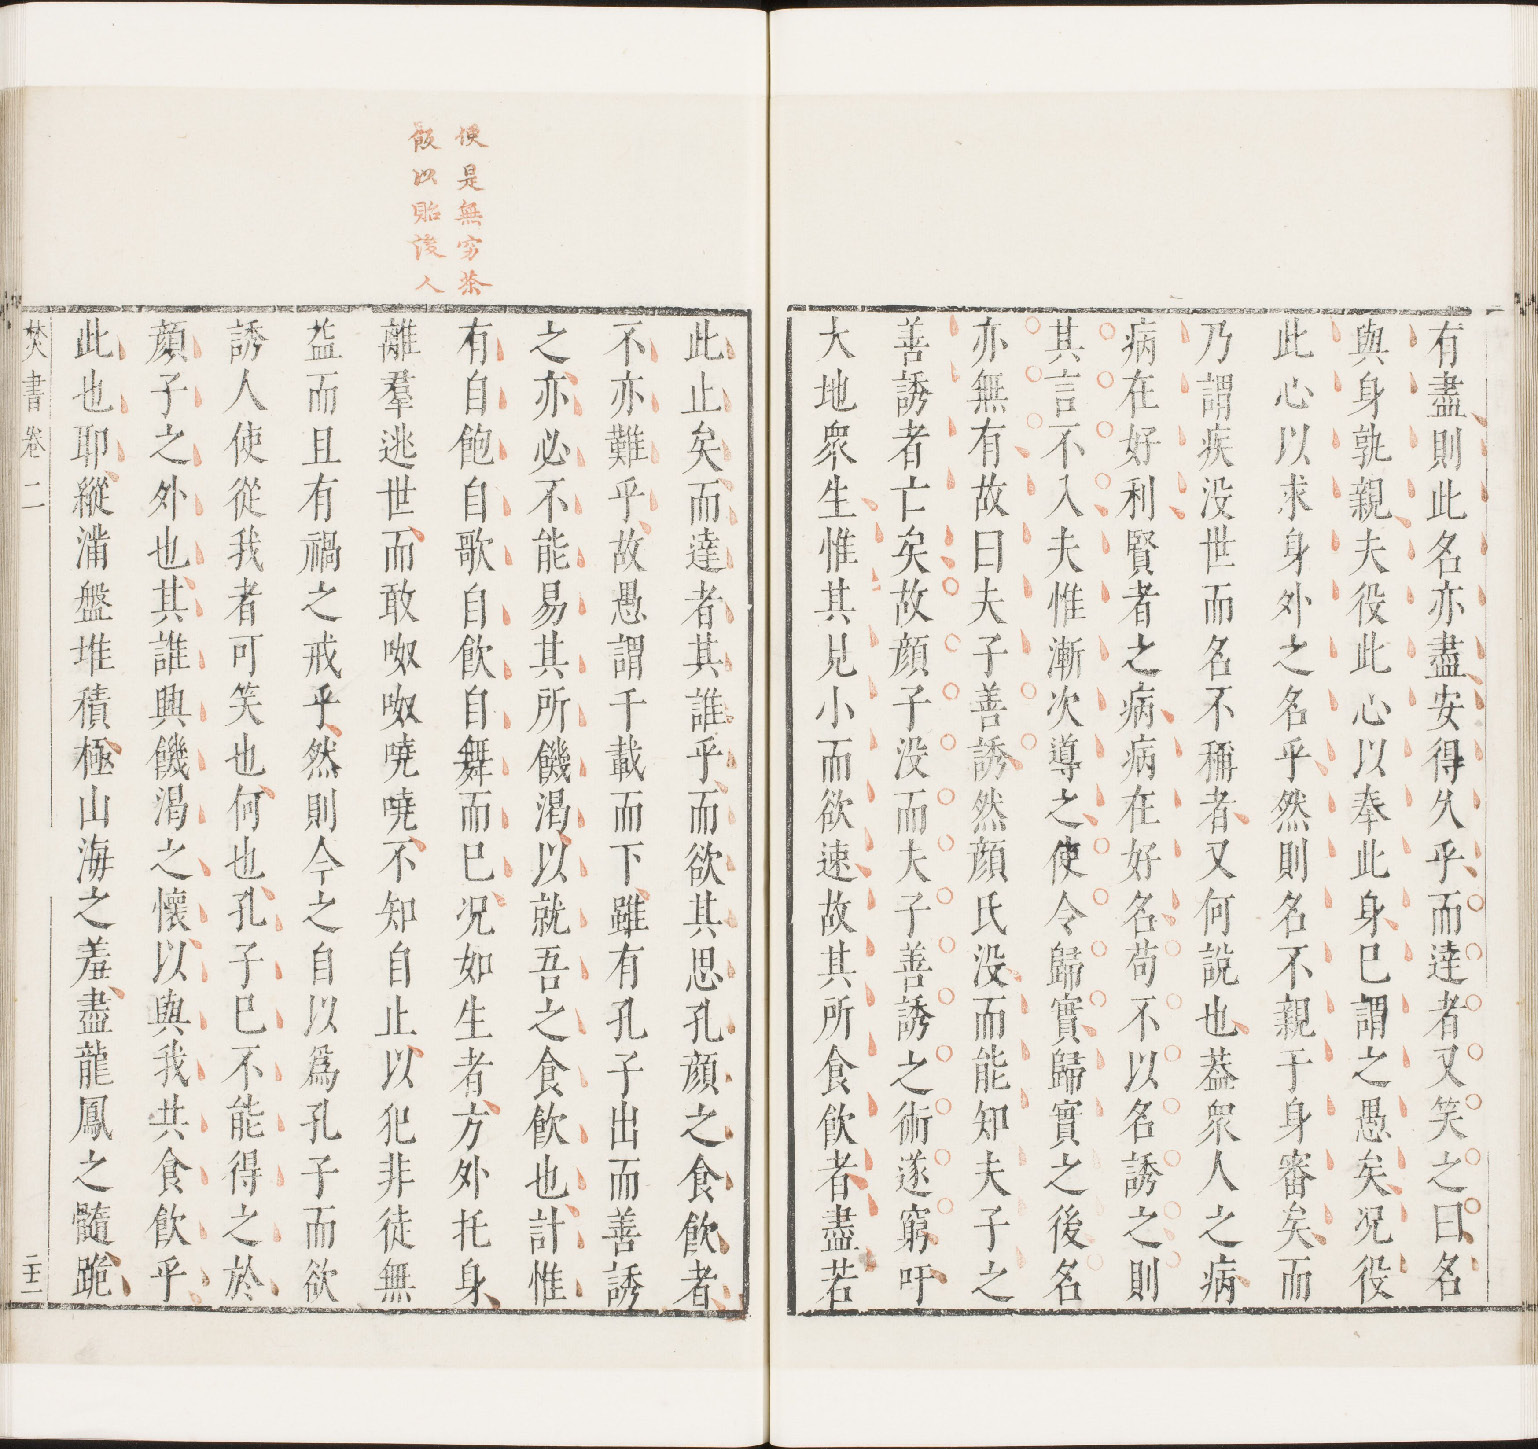 有盡則此名亦盡安得久乎而達者又笑之曰名
與身孰親夫役此心以奉此身已謂之愚矣况役
此心以求身外之名乎然則名不親于身審矣而
乃謂疾没世而名不稱者又何說也葢衆人之病
病在好利賢者之病病在好名苟不以名誘之則
其言不入夫惟漸次導之使令歸實歸實之後名
亦無有故曰夫子善誘然顔氏没而能知夫子之
善誘者亡矣故顔子没而夫子善誘之術遂窮吁
大地衆生惟其見小而欲速故其所食飲者盡若
此止矣而達者其誰乎而欲其思孔顔之食飲者
不亦難乎故愚謂千載而下雖有孔子出而善誘
之亦必不能易其所饑渴以就吾之食飲也計惟
有自飽自歌自飲自舞而已况如生者方外托身
離羣逃世而敢呶呶嘵嘵不知自止以犯非徒無
益而且有禍之戒乎然則今之自以爲孔子而欲
誘人使從我者可笑也何也孔子已不能得之於
顔子之外也其誰與饑渴之懷以與我共食飲乎
此也耶縱滿盤堆積極山海之羞盡龍鳳之髓跪
便是無窮茶
飯以貽後人
焚書卷二
二十二